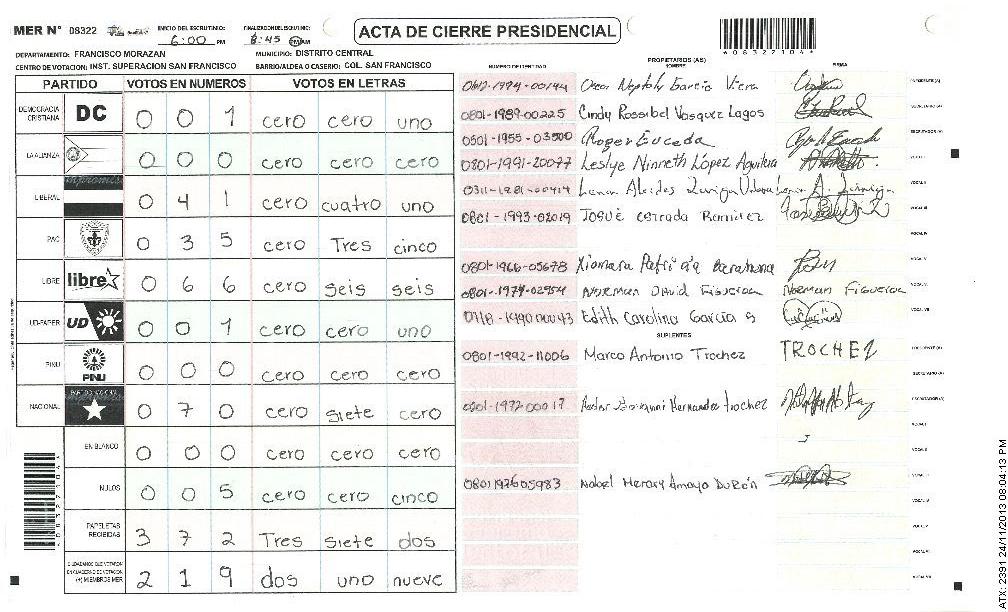 MER N° 08322 INICIO DEL ESCRUTINIO: 6:00 PM FINALIZACION DEL ESCRUTINIO: 8:45 PM
ACTA DE CIERRE PRESIDENCIAL
*08322104*
DEPARTAMENTO: FRANCISCO MORAZAN MUNICIPIO: DISTRITO CENTRAL
CENTRO DE VOTACION: INST. SUPERACION SAN FRANCISCO BARRIO/ALDEA O CASERIO: COL. SAN FRANCISCO
PARTIDO VOTOS EN NUMEROS VOTOS EN LETRAS
DEMOCRACIA CRISTIANA DC 0 0 1 cero cero uno
LA ALIANZA 0 0 0 cero cero cero
LIBERAL 0 4 1 cero cuatro uno
PAC 0 3 5 cero Tres cinco
LIBRE libre 0 6 6 cero seis seis
UD-FAPER UD 0 0 1 cero cero uno
PINU PINU 0 0 0 cero cero cero
NACIONAL 0 7 0 cero siete cero
EN BLANCO 0 0 0 cero cero cero
NULOS 0 0 5 cero cero cinco
PAPELETAS RECIBIDAS 3 7 2 Tres siete dos
CIUDADANOS QUE VOTARON EN CUADERNO DE VOTACION (+) MIEMBROS MER 2 1 9 dos uno nueve
NUMERO DE IDENTIDAD PROPIETARIOS (AS) NOMBRE FIRMA
0612-1994-00144 Oscar Neptaly Garcia Viera PRESIDENTE(A)
0801-1989-00225 Cindy Rossibel Vasquez Lagos SECRETARIO(A)
0501-1955-03500 Roger Euceda Roger A Euceda ESCRUTADOR(A)
0801-1991-20077 Leslye Ninneth López Aguilera VOCAL I
0311-1981-00414 VOCAL II
0801-1993-02019 JOSUÉ cerrada Ramirez VOCAL III
VOCAL IV
0801-1966-05678 Xiomara Patricia Barahona VOCAL V
0801-1979-02954 NORMAN DAVID FIGUEROA NORMAN FIGUEROA
Edith Carolina Garcia
SUPLENTES
0801-1992-11006 Marco Antonio Trochez TROCHEZ PRESIDENTE(A)
SECRETARIO(A)
0801-197200017 Hernandez trochez ESCRUTADOR(A)
VOCAL I
VOCAL II
0801197605983 Mabel Merary Amaya Durón VOCAL III
VOCAL IV
VOCAL V
VOCAL VI
VOCAL VII
*08322104*
ATX: 2391 24/11/2013 08:04:13 PM